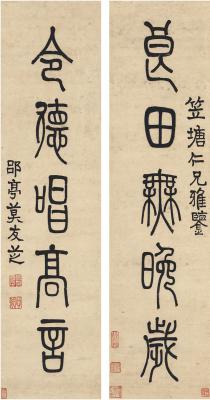 笠塘仁兄雅鑒
良田無晚歲
令德唱高言
郘亭莫友芝